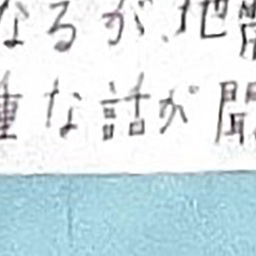 なるが、地
な話が聞